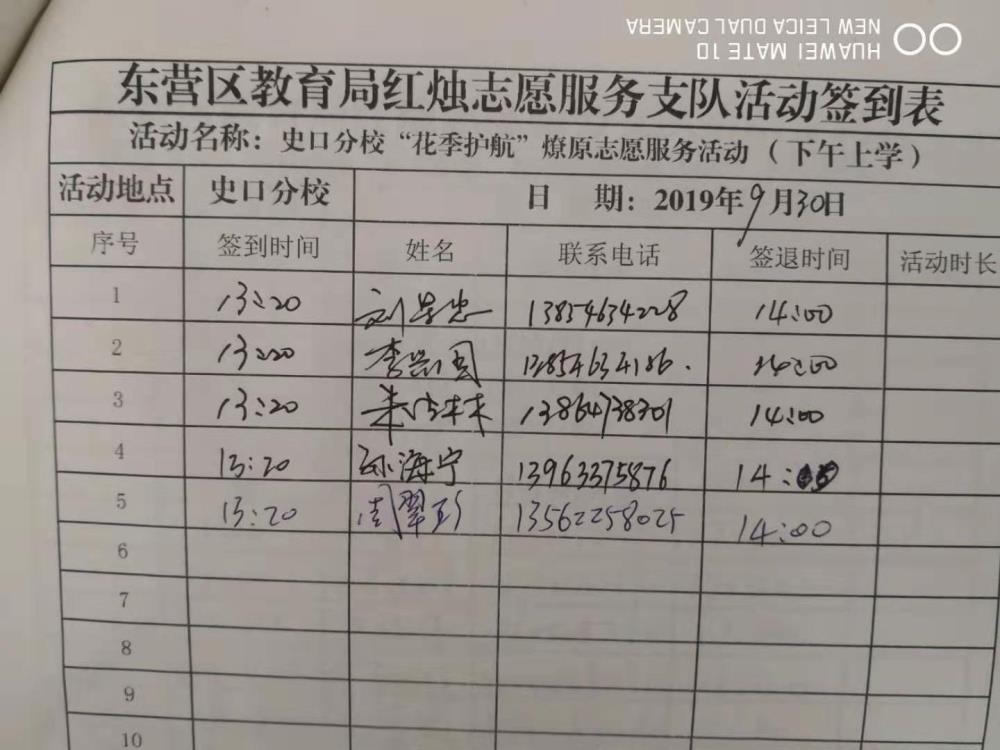 NEW LEICA DUAL CAMERA
HUAWEI MATE 10
东营区教育局红烛志愿服务支队活动签到表
活动名称：史口分校“花季护航”燎原志愿服务活动（下午上学）
活动地点 史口分校 日 期：2019年9月30日
序号 签到时间 姓名 联系电话 签退时间 活动时长
1 13:20 13854634228 14:00
2 13:20 李兴国 13854634186. 14:00
3 13:20 13864738301 14:00
4 13:20 孙海宁 13963375876 14:
5 13:20 周翠 13562258025 14:00
6
7
8
9
10